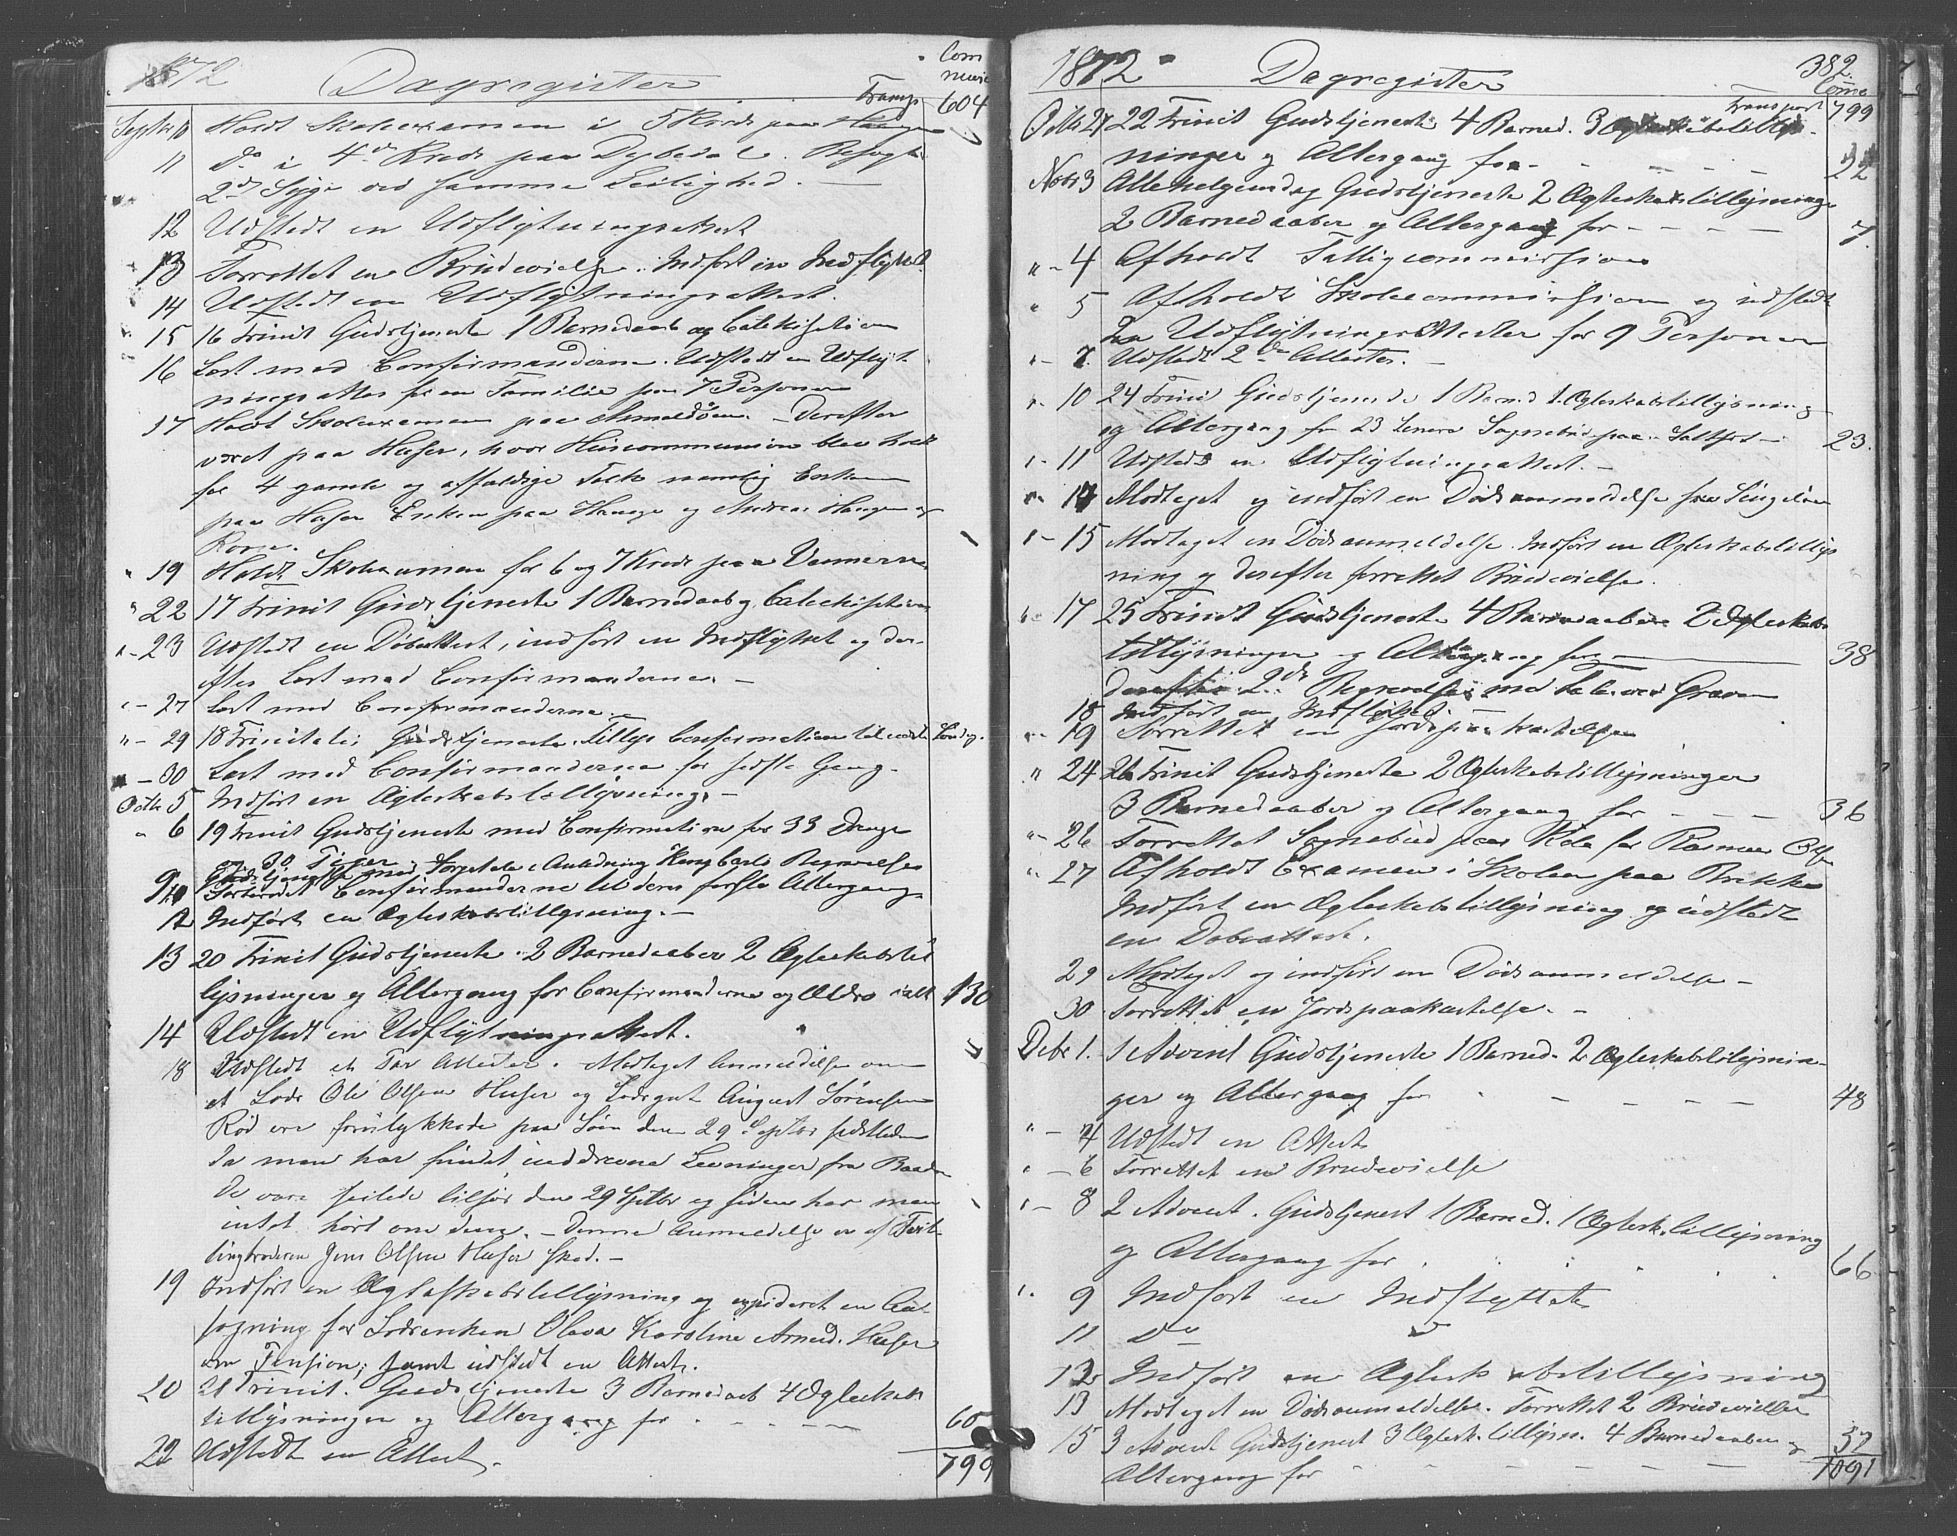 1872 Dagregister Com
muni
Transp 604
Septbr 10 Holdt Skoleexamen i 5 Kreds paa Haugen
11 Do i 4de Kreds paa Dybedal. Besøgt
2de Syge ved samme Leilighed. —
12 Udstedt en Udflytningsattest
13 Forrettet en Brudevielse. Indført en Indflyttet.
14 Udstedt en Udflytningsattest.
15 16 Trinit Gudstjeneste 1 Barnedaab og Catekisation
16 Læst med Confirmanderne. Udstedt en Udflyt
ningsattest for en Familie paa 7 Personer
17 Holdt Skoleexamen paa Asmaløen. — Derefter
været paa Huser, hvor Huscommunion blev holdt
for 4 gamle og affældige Folk nemlig Enken
paa Huser Enken paa Hauge og Andreas Haugen og
Kone.
" 19 Holdt Skoleexamen for 6 og 7 Kreds paa Vennerne
" 22 17 Trinit Gudstjeneste 1 Barnedaab og Catekisation
" - 23 Udstedt en Døbeattest, indført en Indflyttet og der-
efter Læst med Confirmanderne. —
" - 27 Læst med Confirmanderne. —
" - 29 18 Trinitatis Gudstjeneste. Tillyst Confirmation til næste Søndag.
" - 30 Læst med Confirmanderne for sidste Gang.
Octbr 5 Indført en Ægteskabstillysning. —
" 6 19 Trinit Gudstjeneste med Confirmation for 33 Drenge
og 30 Piger
9 Gudstjeneste med Foretale i Anledning Kong Carls Begravelse
10 Forberedt Confirmanderne til deres første Altergang
12 Indført en Ægteskabstillysning. —
13 20 Trinit Gudstjeneste. 2 Barnedaaber 2 Ægteskabstil
lysninger og Altergang for Confirmanderne og Ældre ialt 130
14 Udstedt en Udflytningsattest.
18 Udstedt et Par Attester. Modtaget Anmeldelse om
at Lods Ole Olsen Huser og Lodsgut August Sørensen
Rød ere forulykkede paa Søen den 29 Septbr sidstleden
da man har fundet inddrevne Levninger fra Baaden
De vare seilede tilsøs den 29 Septbr og siden har man
intet hørt om dem. — Denne Anmeldelse er af Tvil-
lingbroderen Jens Olsen Huser sked. —
19 Indført en Ægteskabstillysning og expideret en An-
søgning for Lodsenken Olava Karoline Arnesd. Huser
om Pension; samt udstedt en Attest.
20 21 Trinit. Gudstjeneste 3 Barnedaab 4 Ægteskabs
tillysninger og Altergang for - - - - - 65
22 Udstedt en Attest.
799
1872 Dagregister 382
Com
Transport 799
Octbr 27 22 Trinit Gudstjeneste 4 Barned. 3 Ægteskabstillys-
ninger og Altergang for - - - - 22
Novbr 3 Allehelgensdag Gudstjeneste 2 Ægteskabstillysninger
2 Barnedaaber og Altergang for - - - - 7.
" - 4 Afholdt Fattigcommission
" 5 Afholdt Skolecommission og udstedt
Udflytningsattester for 9 Personer
" - 7. Udstedt 2de Attester. —
" - 10 24 Trinit Gudstjeneste 1 Barned 1 Ægteskabstillysning
og Altergang for 23 Senere Sognebud paa 23.
" - 11 Udstedt en Udflytningsattest. —
" - 14 Modtaget og indført en Dødsanmeldelse fra Singeløen
" - 15 Modtaget en Dødsanmeldelse. Indført en Ægteskabstillys
ning og derefter forrettet Brudevielse.
" - 17 25 Trinit Gudstjeneste 4 Barnedaaber 2 Ægteskabs
tillysninger og Altergang for — 38
derefter 2de Begravelser med Tale ved Graven
18 Indført en Indflyttet
" - 19 Forrettet en Jordspaakastelse
" 24 26 Trinit Gudstjeneste 2 Ægteskabstillysninger
3 Barnedaaber og Altergang for - - - - 36
" - 26 Forrettet Sognebud paa for Rasmus
" 27 Afholdt Examen i Skolen paa Brekke
Indført en Ægteskabstillysning og udstedt
en Døbeattest.
29 Modtaget og indført en Dødsanmeldelse —
30 Forrettet en Jordspaakastelse. —
Decbr 1. 1 Advent Gudstjeneste 1 Barned. 2 Ægteskabstillysnin-
ger og Altergang for - - - - - 48
" - 4 Udstedt en Attest
" - 6 Forrettet en Brudevielse
" - 8 2 Advent. Gudstjenest 1 Barned. 1 Ægtesk. tillysning
og Altergang for . . . . 66.
". 9 Indført en Indflyttet
11 Do Do
12 Indført en Ægteskabstillysning
13 Modtaget en Dødsanmeldelse. Forrettet 2 Brudevielser
15 3 Advent Gudstjenest 3 Ægtesk. tillysn. 4 Barnedaaber og
Altergang for - - - - - - 37
1091